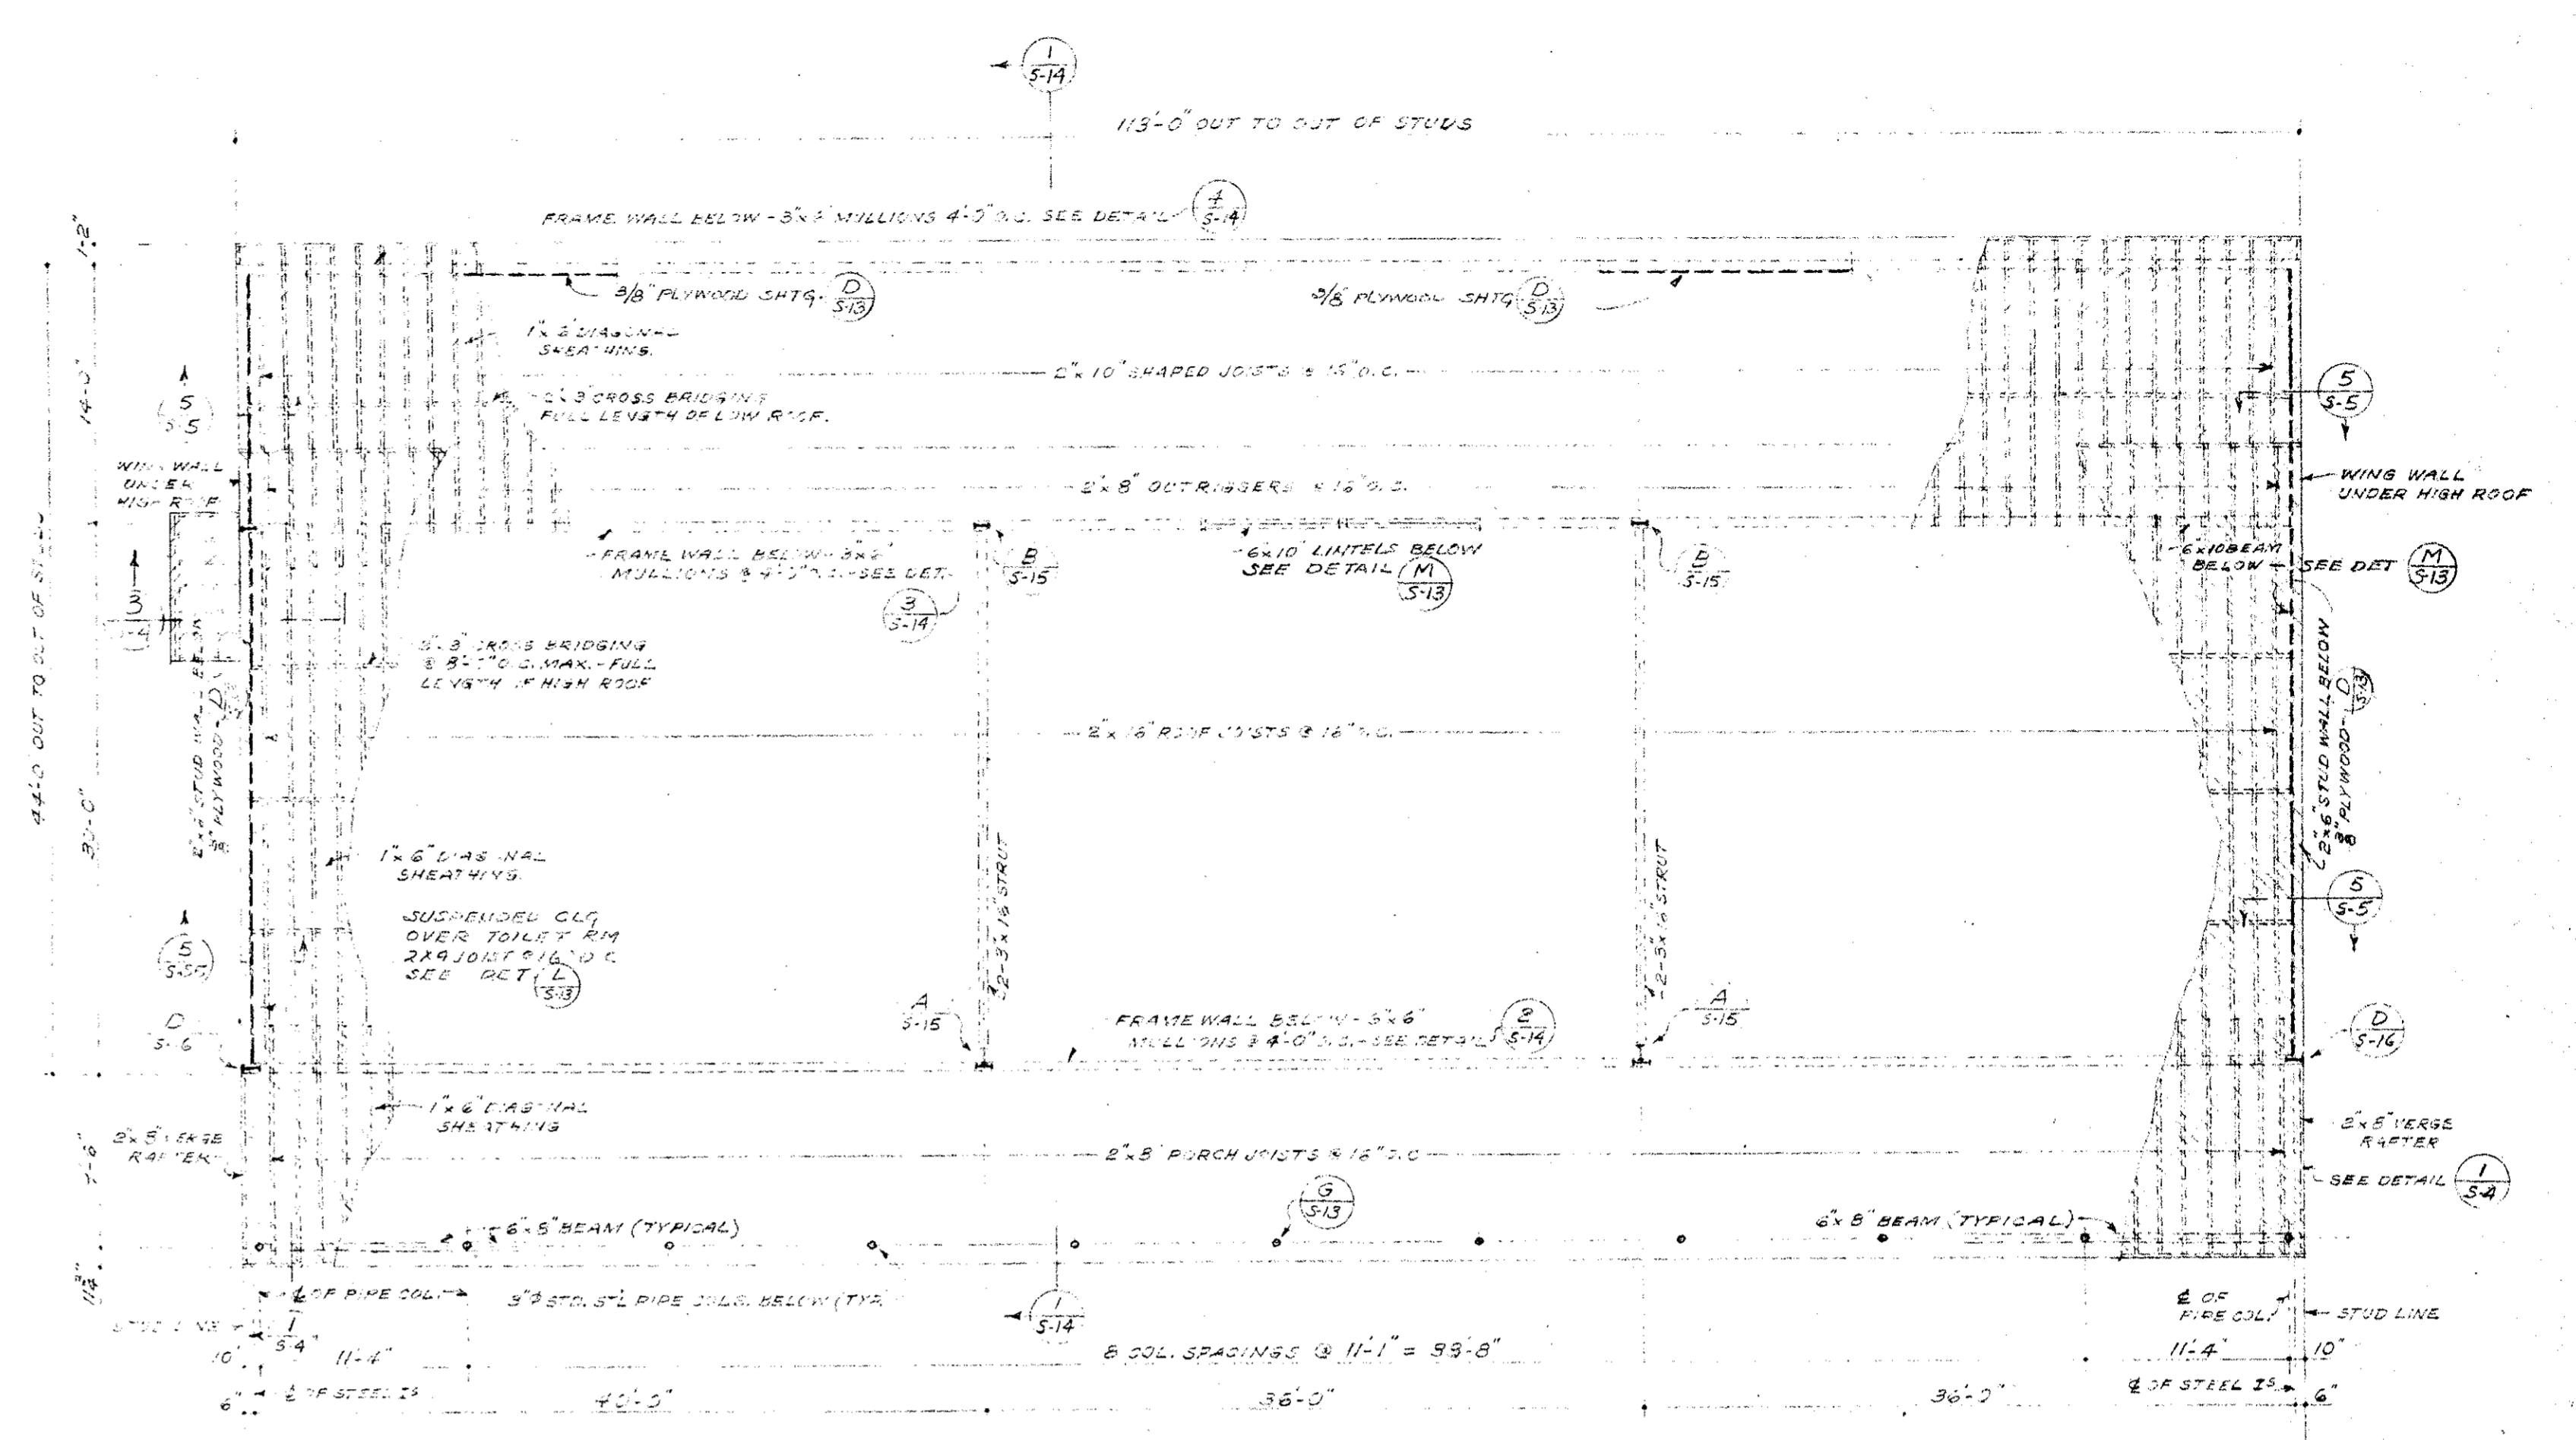 1
S-14
113'-0" OUT TO OUT OF STUDS
FRAME WALL BELOW - 3"x MULLIONS 4'-0" O.C. SEE DETAIL
4
S-14
1'-2"
3/8" PLYWOOD SHTG.
D
S-13
3/8" PLYWOOD SHTG
D
S-13
1"x 6" DIAGONAL
SHEATHING.
2"x10" SHAPED JOISTS @ 16" O.C.
14'-0"
5
S-5
5
S-5
CROSS BRIDGING
FULL LENGTH OF LOW ROOF.
WING WALL
UNDER
HIGH ROOF
2"x8" OUTRIGGERS @ 16" O.C.
WING WALL
UNDER HIGH ROOF
44'-0" OUT TO OUT OF STUDS
FRAME WALL BELOW - 3"x6"
MULLIONS @ 4'-0" O.C. - SEE DET.
3
S-14
B
S-15
6"x10" LINTELS BELOW
SEE DETAIL
M
S-13
B
S-15
6x10 BEAM
BELOW
SEE DET
M
S-13
3
CROSS BRIDGING
@ 8'-0" O.C. MAX. - FULL
LENGTH OF HIGH ROOF
2"x6" STUD WALL BELOW
3/8" PLYWOOD - D
2"x6" STUD WALL BELOW
3/8" PLYWOOD -
D
S-13
2"x16" ROOF JOISTS @ 16" O.C.
1"x6" DIAGONAL
SHEATHING.
SUSPENDED CLG
OVER TOILET RM
2X4 JOIST @ 16" O.C.
SEE DET
L
S-13
2-3"x16" STRUT
2-3"x16" STRUT
5
S-5
5
S-5
D
A
S-15
FRAME WALL BELOW - 3"x6"
MULLIONS @ 4'-0" O.C. - SEE DETAIL
2
S-14
A
S-15
D
S-16
1"x6" DIAGONAL
SHEATHING
2"x8" VERGE
RAFTER
2"x8" PORCH JOISTS @ 16" O.C.
2"x8" VERGE
RAFTER
SEE DETAIL
1
S-4
G
S-13
6"x8" BEAM (TYPICAL)
6"x8" BEAM (TYPICAL)
℄ OF PIPE COL.
3"Φ STD. STL PIPE COLS. BELOW (TYP.
1
S-14
℄ OF
PIPE COL.
STUD LINE
STUD LINE
1
S-4
10"
11'-4"
8 COL. SPACINGS @ 11'-1" = 88'-8"
11'-4"
10"
6"
℄ OF STEEL IS
40'-0"
36'-0"
36'-0"
℄ OF STEEL IS
6"